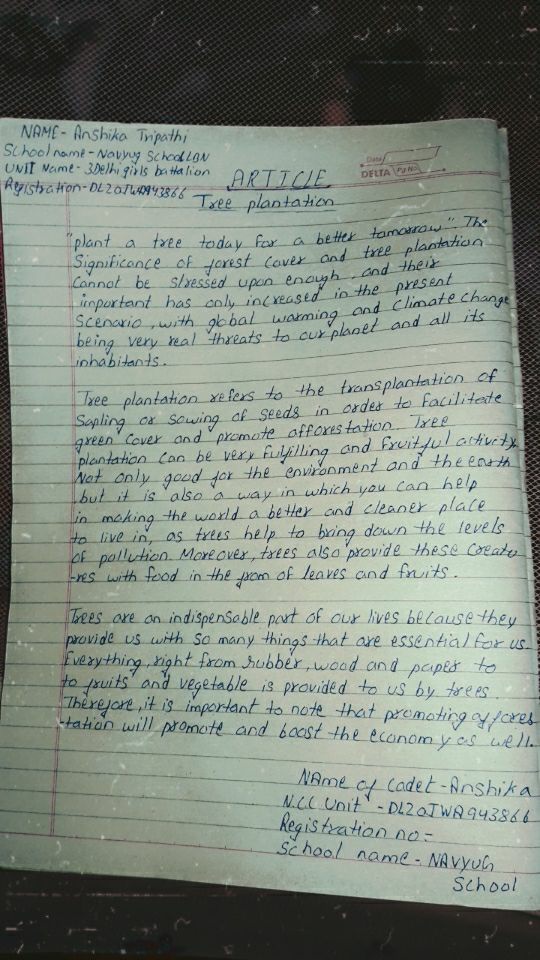 NAME- Anshika Tripathi
School name - Navyug School LBN
UNIT Name - 3Delhi girls battalion
Registration - DL20JWA943866
ARTICLE
Date
DELTA Pg No.
Tree plantation
"plant a tree today for a better tomorrow" The
Significance of forest cover and tree plantation
Cannot be stressed upon enough, and their
important has only increased in the present
Scenario, with global warming and climate change
being very real threats to our planet and all its
inhabitants.
Tree plantation refers to the transplantation of
Sapling or Sowing of Seeds in order to facilitate
green cover and promote afforestation. Tree
plantation can be very fulfilling and fruitful activity.
Not only good for the environment and the earth
but it is also a way in which you can help
in making the world a better and cleaner place
to live in, as trees help to bring down the levels
of pollution. Moreover, trees also provide these creatu
-res with food in the from of leaves and fruits.
Trees are an indispensable part of our lives because they
provide us with so many things that are essential for us.
Everything, right from rubber, wood and paper to
to fruits and vegetable is provided to us by trees.
Therefore, it is important to note that promoting affores
-tation will promote and boost the economy as well.
NAme of Cadet - Anshika
N.C.C Unit - DL20JWA943866
Registration no =
School name - NAVYUG
School